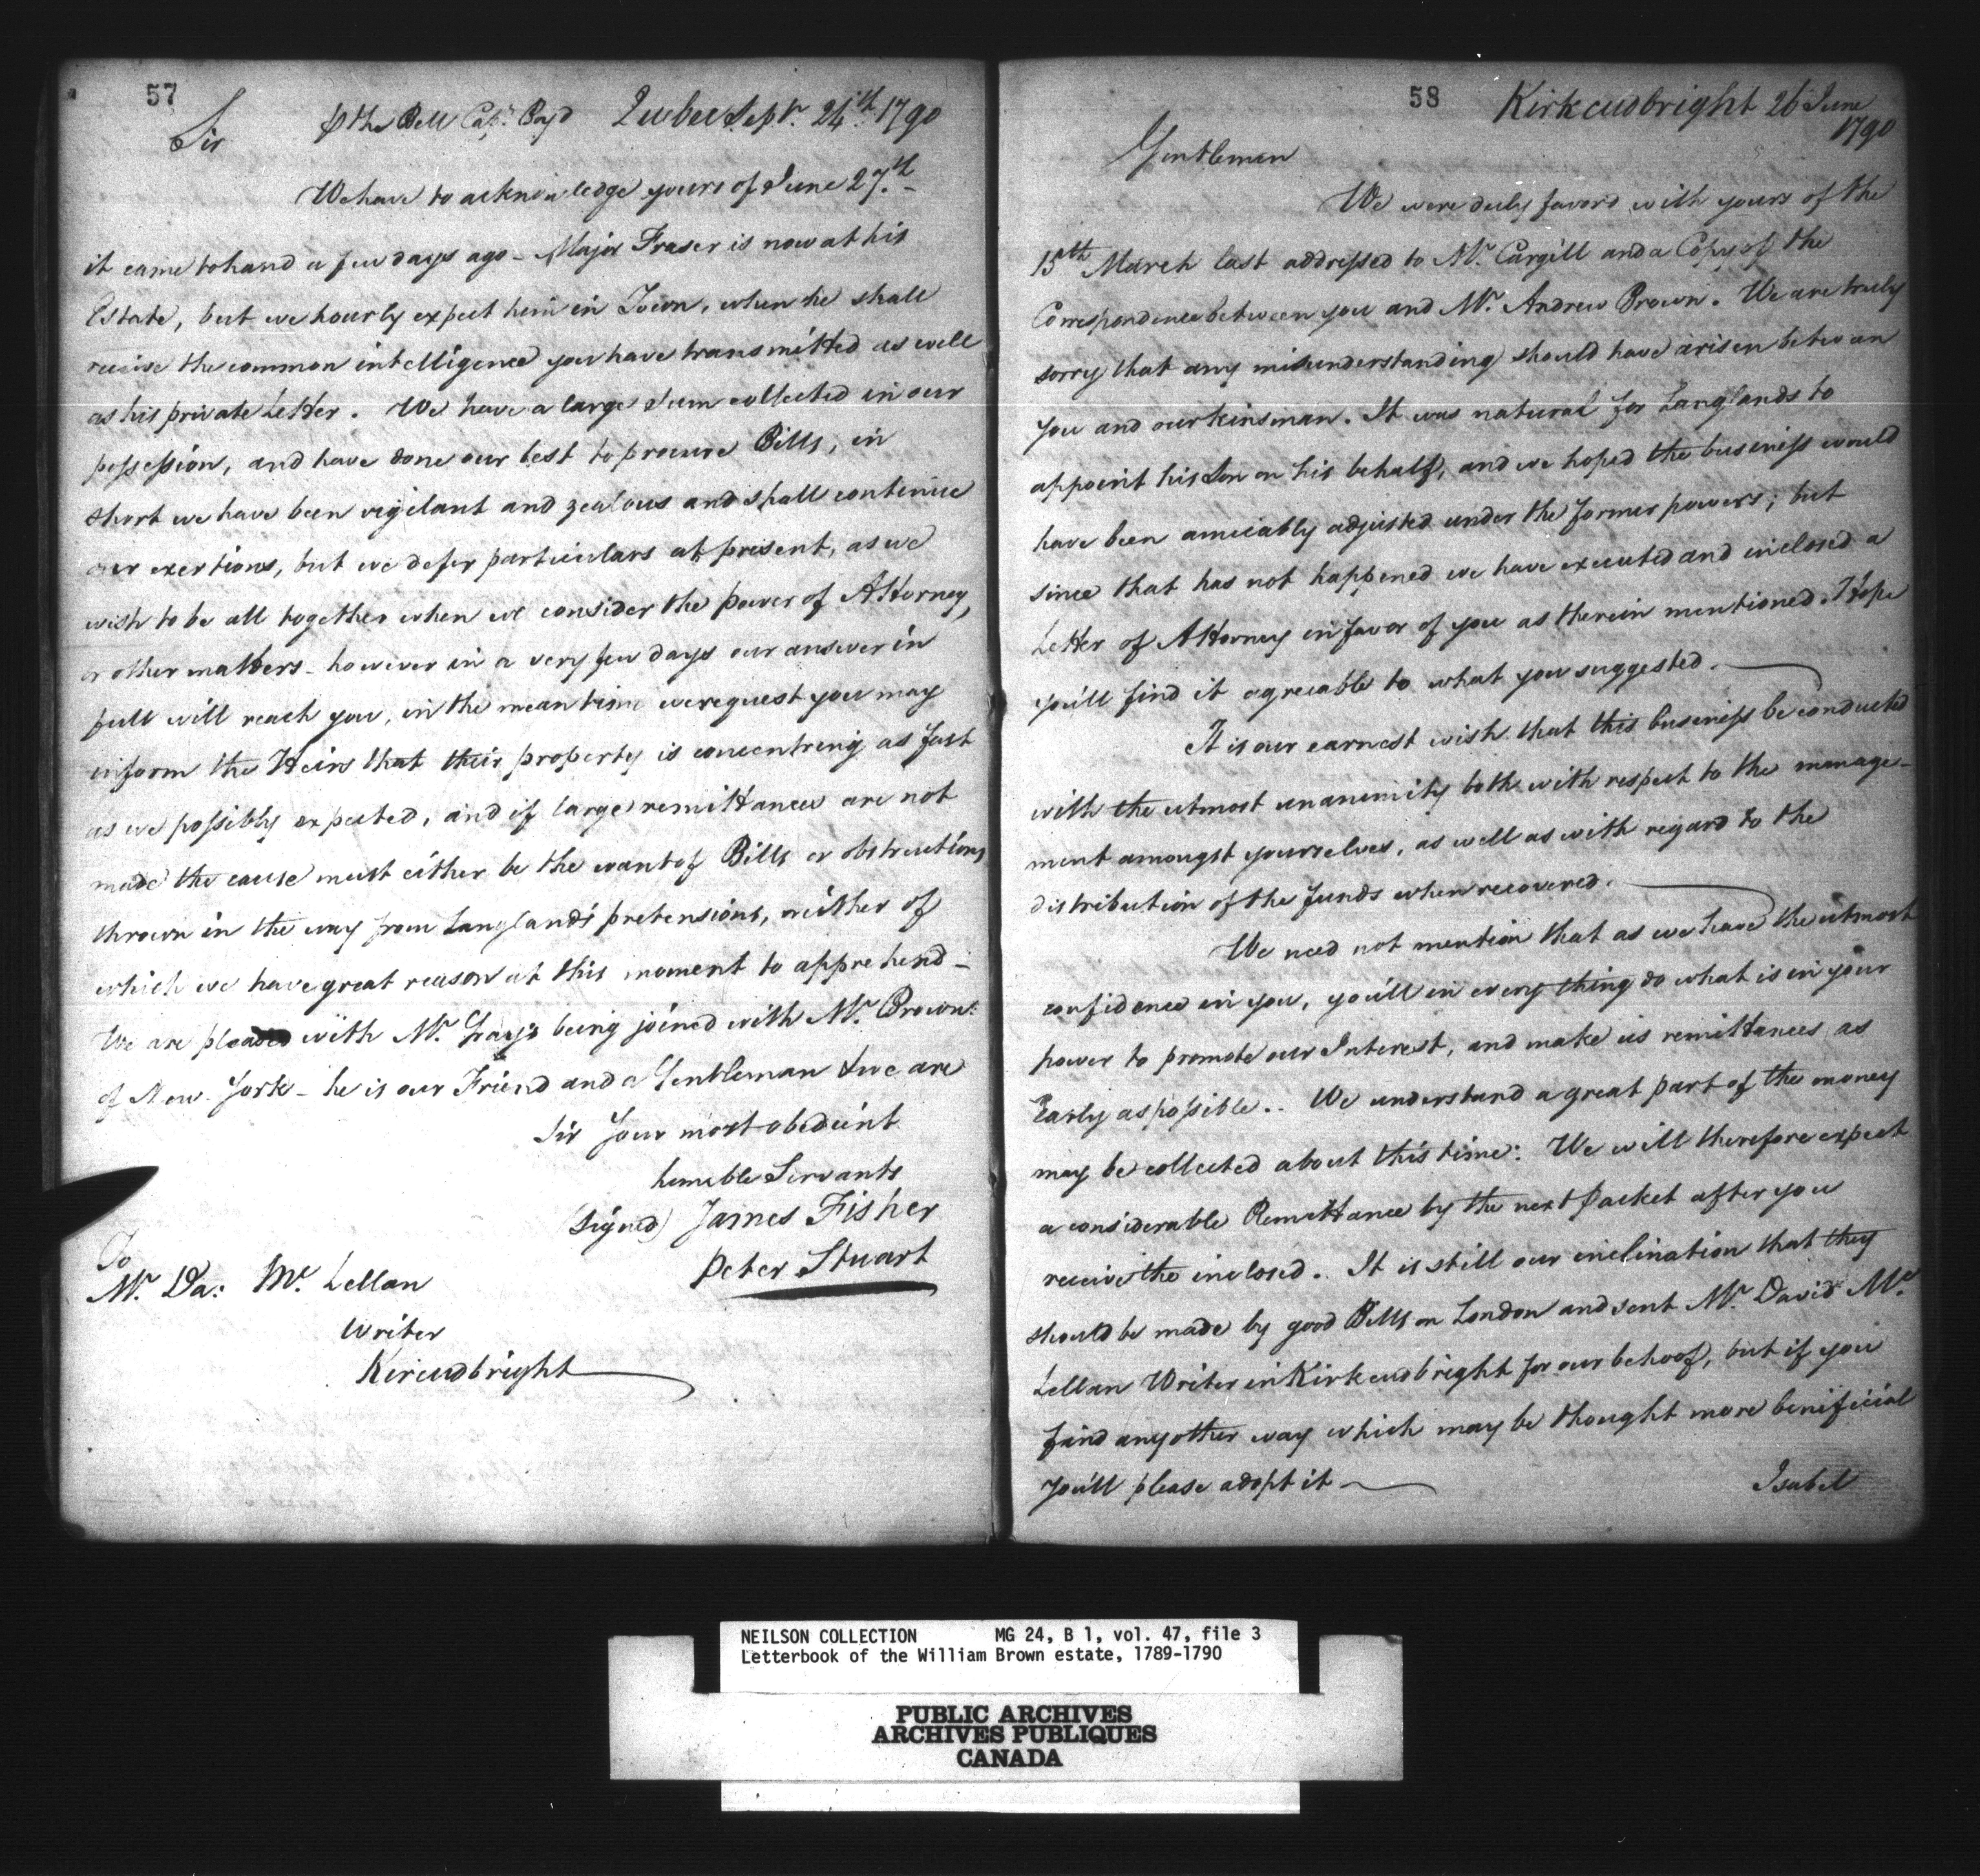 57
℔ the Bell Capt. Boyd Quebec Septr. 24th 1790
Sir
We have to acknowledge yours of June 27th
it came to hand a few days ago - Major Fraser is now at his
Estate, but we hourly expect him in Town, when he shall
receive the common intelligence you have transmitted as well
as his private Letter. We have a large sum collected in our
possession, and have done our best to procure Bills, in
short we have been vigilant and zealous and shall continue
our exertions, but we defer particulars at present, as we
wish to be all together when we consider the power of Attorney,
or other matters - however in a very few days our answer in
full will reach you, in the mean time we request you may
inform the Heirs that their property is concentring as fast
as we possibly expected, and if large remittances are not
made the cause must either be the want of Bills or obstructions
thrown in the way from Langlands pretensions, neither of
which we have great reason at this moment to apprehend -
We are pleased with Mr. Gray's being joined with Mr. Brown
of New-York - he is our Friend and a Gentleman & we are
Sir Your most obedient
humble Servants
(signed) James Fisher
Peter Stuart
To
Mr. Da: Mc. Lellan
Writer
Kircudbright
58
Kirkcudbright 26 June
1790
Gentlemen
We were duly favord with yours of the
15th March last addressed to Mr. Cargill and a Copy of the
Correspondence between you and Mr. Andrew Brown. We are truly
sorry that any misunderstanding should have arisen between
you and our kinsman. It was natural for Langlands to
appoint his Son on his behalf, and we hoped the business would
have been amicably adjusted under the former powers; but
since that has not happened we have executed and inclosed a
Letter of Attorney in favor of you as therein mentioned. I hope
you'll find it agreeable to what you suggested.
It is our earnest wish that this business be conducted
with the utmost unanimity both with respect to the manage-
ment amongst yourselves, as well as with regard to the
distribution of the funds when recovered.
We need not mention that as we have the utmost
confidence in you, you'll in every thing do what is in your
power to promote our Interest, and make us remittances as
early as possible.. We understand a great part of the money
may be collected about this time: We will therefore expect
a considerable Remittance by the next Packet after you
receive the inclosed. It is still our inclination that they
should be made by good Bills on London and sent Mr. David Mc.
Lellan Writer in Kirkcudbright for our behoof, but if you
find any other way which may be thought more benificial
You'll please adopt it
Isabel
NEILSON COLLECTION MG 24, B 1, vol. 47, file 3
Letterbook of the William Brown estate, 1789-1790
PUBLIC ARCHIVES
ARCHIVES PUBLIQUES
CANADA